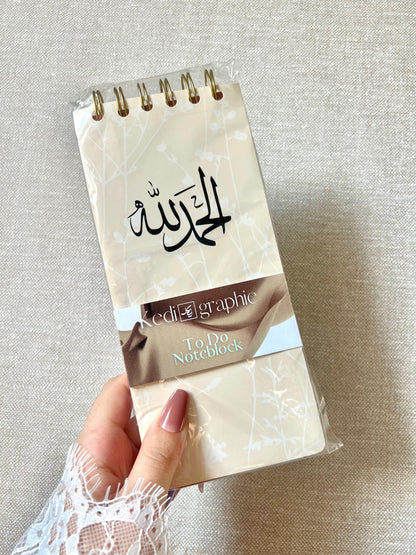 الحمد لله
Kedi graphic
To Do
Noteblock